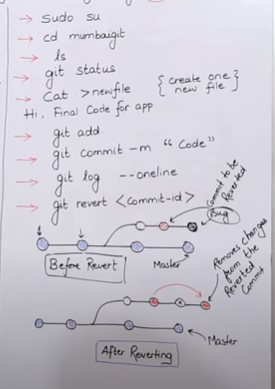 → sudo su
→ cd mumbaigit
→ ls
→ git status
→ Cat >newfile { create one new file }
Hi, Final Code for app
→ git add
→ git commit -m "Code"
→ git log --oneline
→ git revert <commit-id>
Commit to be Reverted
Bug
Before Revert
Master
Removes changes from the Reverted Commit
Master
After Reverting